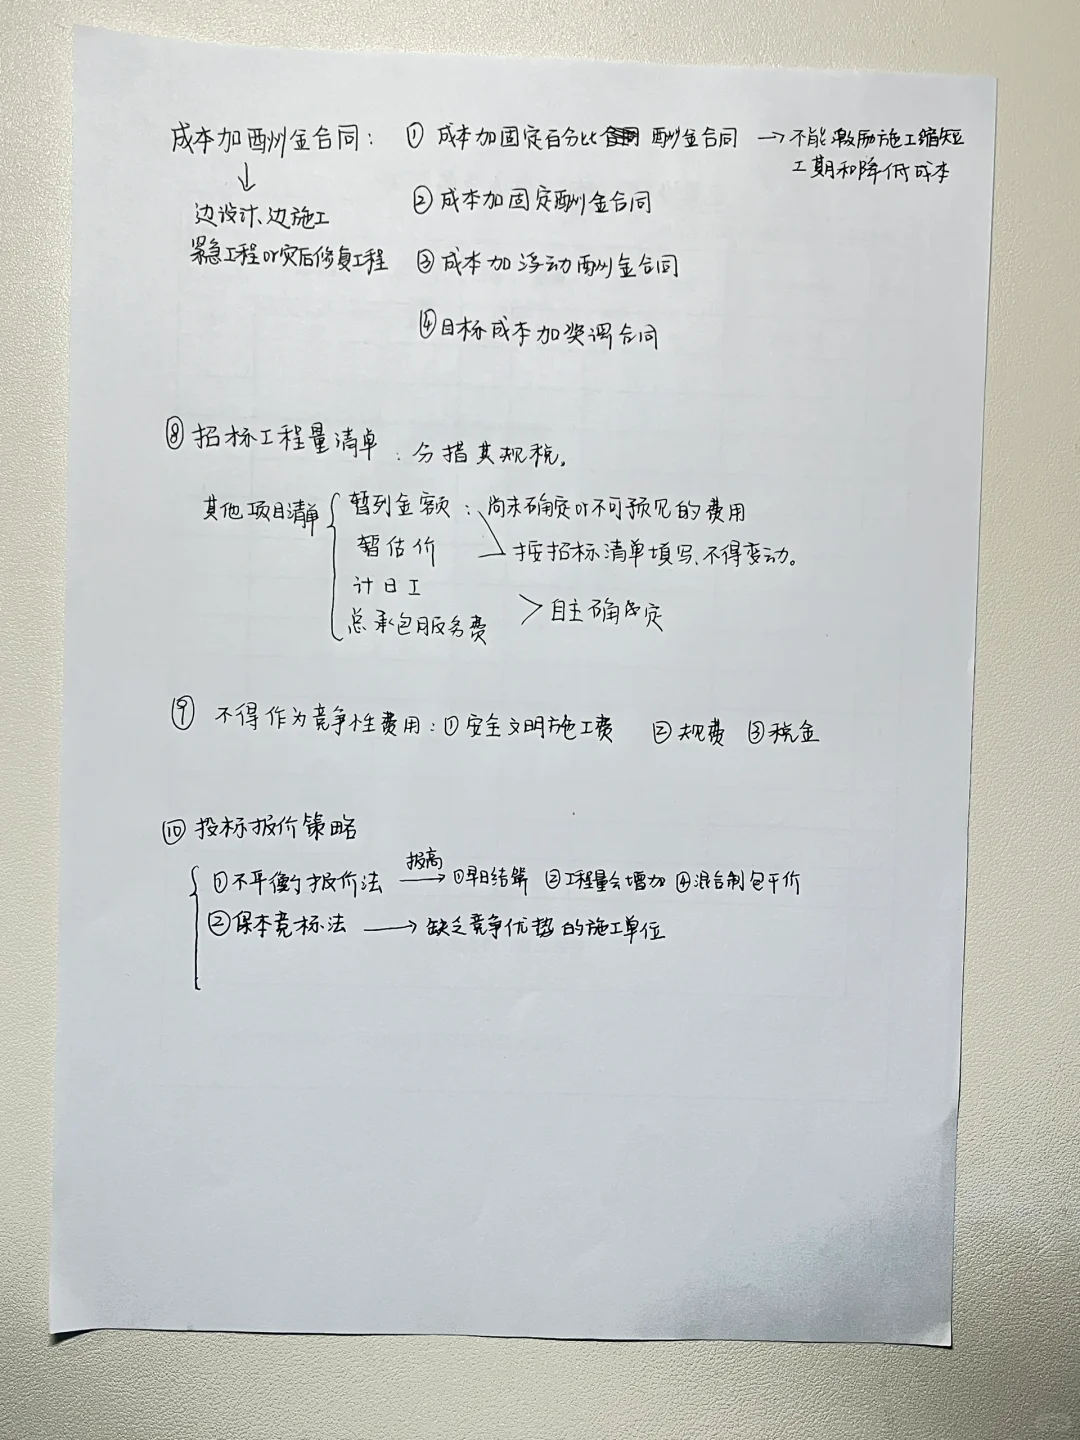 成本加酬金合同： ① 成本加固定百分比酬金合同 → 不能激励施工缩短
工期和降低成本
↓
边设计、边施工
② 成本加固定酬金合同
紧急工程or灾后修复工程
③ 成本加浮动酬金合同
④ 目标成本加奖罚合同
⑧ 招标工程量清单：分措其规税。
其他项目清单
暂列金额：尚未确定or不可预见的费用
暂估价
按招标清单填写、不得变动。
计日工
> 自主确定
总承包服务费
⑨ 不得作为竞争性费用：① 安全文明施工费 ② 规费 ③ 税金
⑩ 投标报价策略
报高
① 不平衡报价法 → ① 早日结算 ③ 工程量会增加 ④ 混合制包干价
② 保本竞标法 → 缺乏竞争优势的施工单位